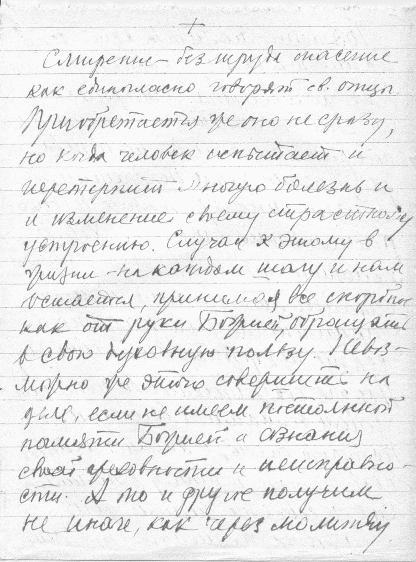 +
Смирение – без труда спасение
как единогласно говорят св. отцы
Приобретается же оно не сразу,
но когда человек испытает и
перетерпит многую болезнь и
и изменение своему страстному
устроению. Случаи к этому в
жизни – на каждом шагу и нам
остается, принимая все скорбное
как от руки Божией, обращать
в свою духовную пользу. Невоз-
можно же этого совершить на
деле, если не имеем постоянной
памяти Божией и сознания
своей греховности и неисправно-
сти. А то и другое получим
не иначе, как через молитву